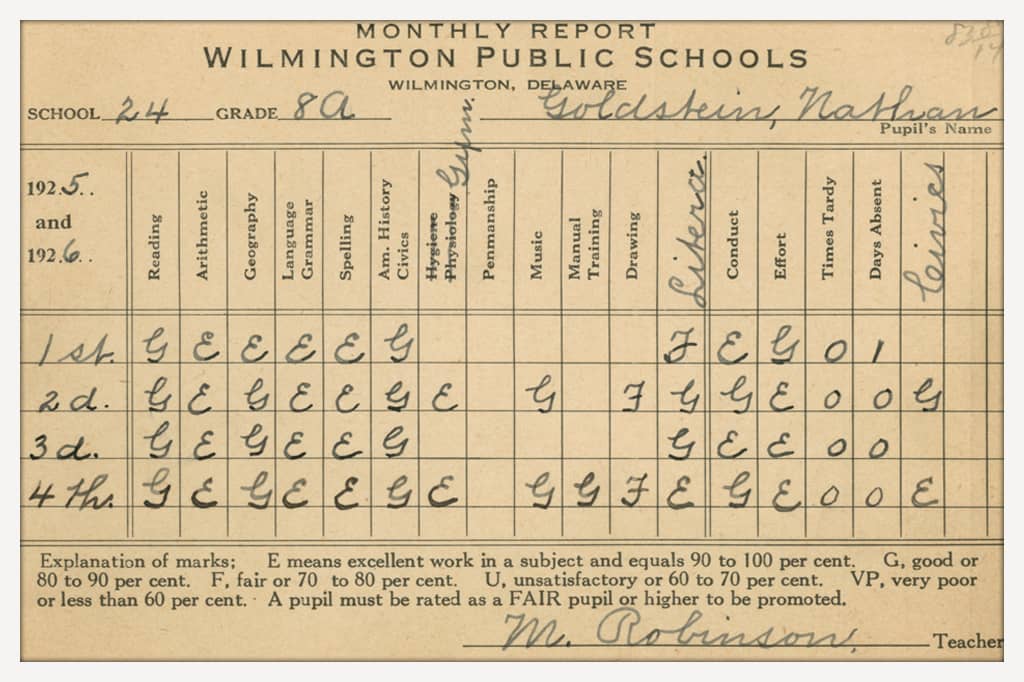 MONTHLY REPORT
WILMINGTON PUBLIC SCHOOLS
WILMINGTON, DELAWARE
SCHOOL 24 GRADE 8A Goldstein, Nathan
Pupil's Name
1925.. and 1926..
Reading
Arithmetic
Geography
Language Grammar
Spelling
Am. History Civics
Hygiene Physiology Gym.
Penmanship
Music
Manual Training
Drawing
Litera.
Conduct
Effort
Times Tardy
Days Absent
Civics
1st. G E E E E G F E G 0 1
2d. G E G E E G E G F G G E 0 0 G
3d. G E G E E G G E E 0 0
4th. G E G E E G E G G F E G E 0 0 E
Explanation of marks; E means excellent work in a subject and equals 90 to 100 per cent. G, good or
80 to 90 per cent. F, fair or 70 to 80 per cent. U, unsatisfactory or 60 to 70 per cent. VP, very poor
or less than 60 per cent. A pupil must be rated as a FAIR pupil or higher to be promoted.
M. Robinson, Teacher